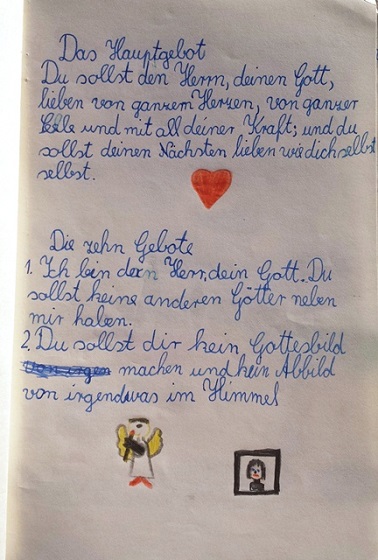 Das Hauptgebot
Du sollst den Herrn, deinen Gott,
lieben von ganzem Herzen, von ganzer
und mit all deiner Kraft; und du
sollst deinen Nächsten lieben wie dich selbst
selbst.
Die zehn Gebote
1. Ich bin dern Herr, dein Gott. Du
sollst keine anderen Götter neben
mir haben.
2. Du sollst dir kein Gottesbild
machen und kein Abbild
von irgendwas im Himmel